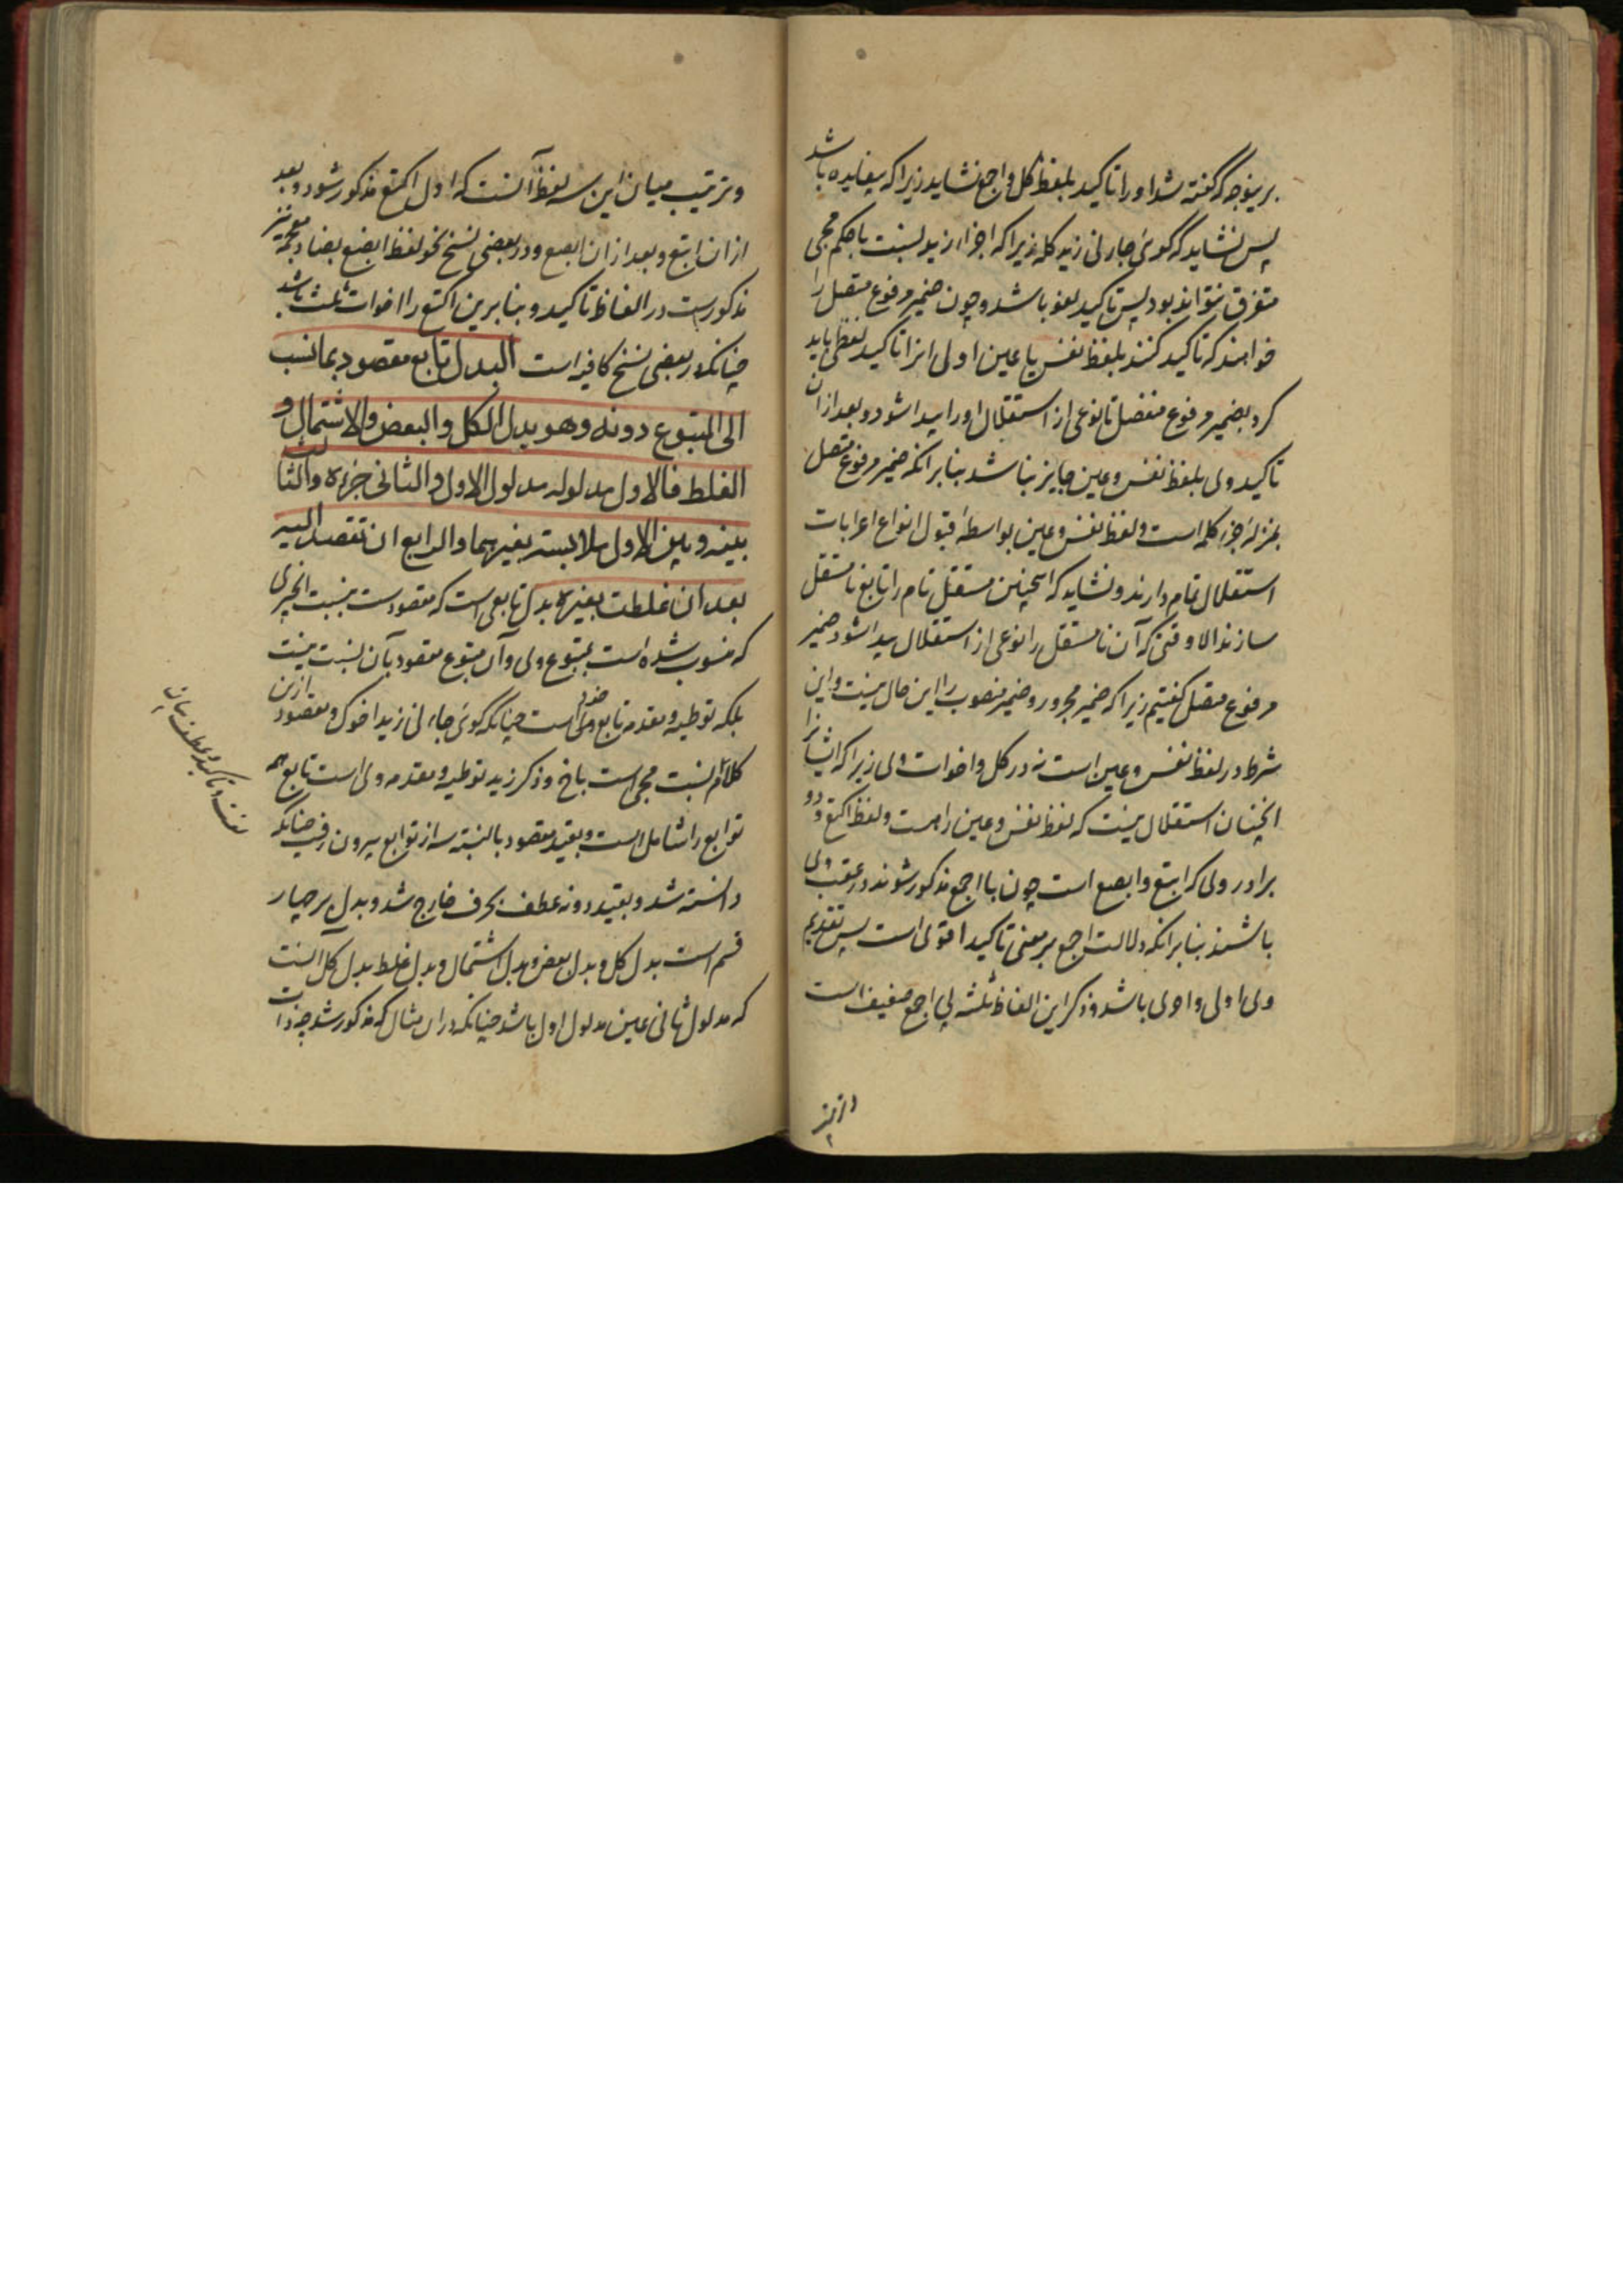 برینوجه که گفته شد او را تاکید بلفظ کل و اجمع نشاید زیرا که بیفایده باشد
پس نشاید که گوئی جاءنی زید کله زیرا که اجزاء زید بنسبت با حکم مجی
متفرق نتواند بود پس تاکید لغو باشد و چون ضمیر مرفوع متصل را
خواهند که تاکید کنند بلفظ نفس یا عین اولی انرا تاکید لفظی باید
کرد بضمیر مرفوع منفصل تا نوعی از استقلال او را پیدا شود و بعد ازان
تاکید وی بلفظ نفس و عین جایز باشد بنابر انکه ضمیر مرفوع متصل
بمنزلهٔ جزء کلمه است و لفظ نفس و عین بواسطهٔ قبول انواع اعرابات
استقلال تمام دارند و نشاید که اینچنین مستقل تام را تابع نامستقل
سازند الا وقتی که آن نامستقل را نوعی از استقلال پیدا شود ضمیر
مرفوع متصل گفتیم زیرا که ضمیر مجرور و ضمیر منصوب را این حال نیست و این
شرط در لفظ نفس و عین است نه در کل و اخوات وی زیرا که ایشانرا
انچنان استقلال نیست که لفظ نفس و عین راست و لفظ اکتع و دو
برادر وی که ابتع و ابصع است چون با اجمع مذکور شوند در عقب وی
باشند بنابر انکه دلالت اجمع بر معنی تاکید اقوی است پس تقدیم
وی اولی و احری باشد و ذکر این الفاظ ثلثه بی اجمع ضعیف است
و ترتیب میان این سه لفظ آنست که اول اکتع مذکور شود و بعد
ازان ابتع و بعد ازان ابصع و در بعضی نسخ نحو لفظ ابضع بضاد معجمه نیز
مذکورست در الفاظ تاکید و بنابرین اکتع را اخوات ثلث باشد
چنانکه در بعضی نسخ کافیه است البدل تابع مقصود بما نسب
الی المتبوع دونه وهو بدل الکل والبعض والاشتمال و
الغلط فالاول مدلوله مدلول الاول والثانی جزءه والثالث
بینه وبین الاول ملابسة بغیرهما والرابع ان تقصد الیه
بعد ان غلطت بغیره بدل تابعی است که مقصودست بنسبت انچیزی
که منسوب شده است بمتبوع وی و آن متبوع مقصود بآن نسبت نیست
بلکه توطیه و مقدمه تابع خود است چنانکه گوئی جاءنی زید اخوک و مقصود ازین
کلام نسبت مجی است باخ و ذکر زید توطیه و مقدمه وی است تابع همه
توابع را شاملست و بقید مقصود بالنسبة سه از توابع بیرون رفت چنانکه
دانسته شد و بقید دونه عطف بحرف خارج شد و بدل بر چهار
قسم است بدل کل و بدل بعض و بدل اشتمال و بدل غلط بدل کل آنست
که مدلول ثانی عین مدلول اول باشد چنانکه دران مثال که مذکور شد چه ذات
نعت و تاکید و عطف بیان